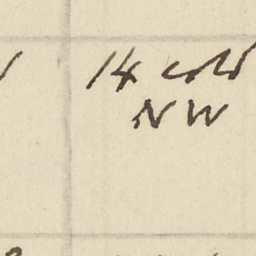 14 cold
NW